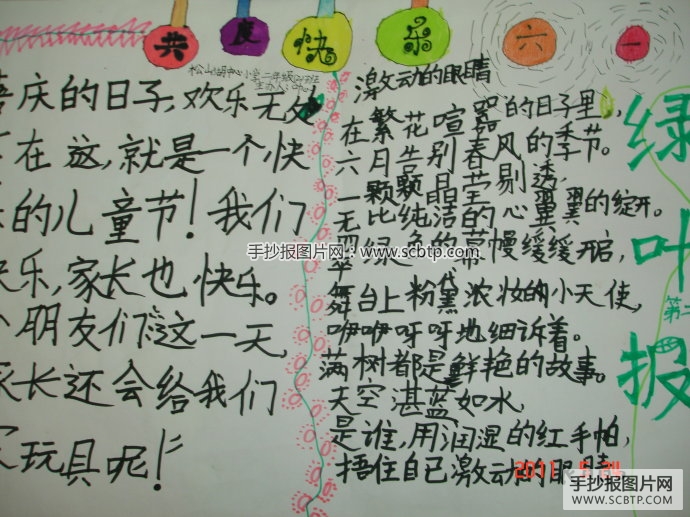 共度快乐六一
松山湖中心小学二年级(2)班
喜庆的日子,欢乐无处
在这,就是一个快
的儿童节!我们
快乐,家长也快乐。
朋友们这一天,
家长还会给我们
玩具呢!
激动的眼睛
在繁花喧嚣的日子里,
六月告别春风的季节。
一颗颗晶莹剔透,
无比纯洁的心翼翼的绽开。
翠绿色的幕幔缓缓开启,
舞台上粉黛浓妆的小天使,
咿咿呀呀地细诉着。
满树都是鲜艳的故事。
天空湛蓝如水,
是谁,用润湿的红手帕,
捂住自己激动的眼睛
绿叶报
第二
手抄报图片网:www.scbtp.com
手抄报图片网
WWW.SCBTP.COM